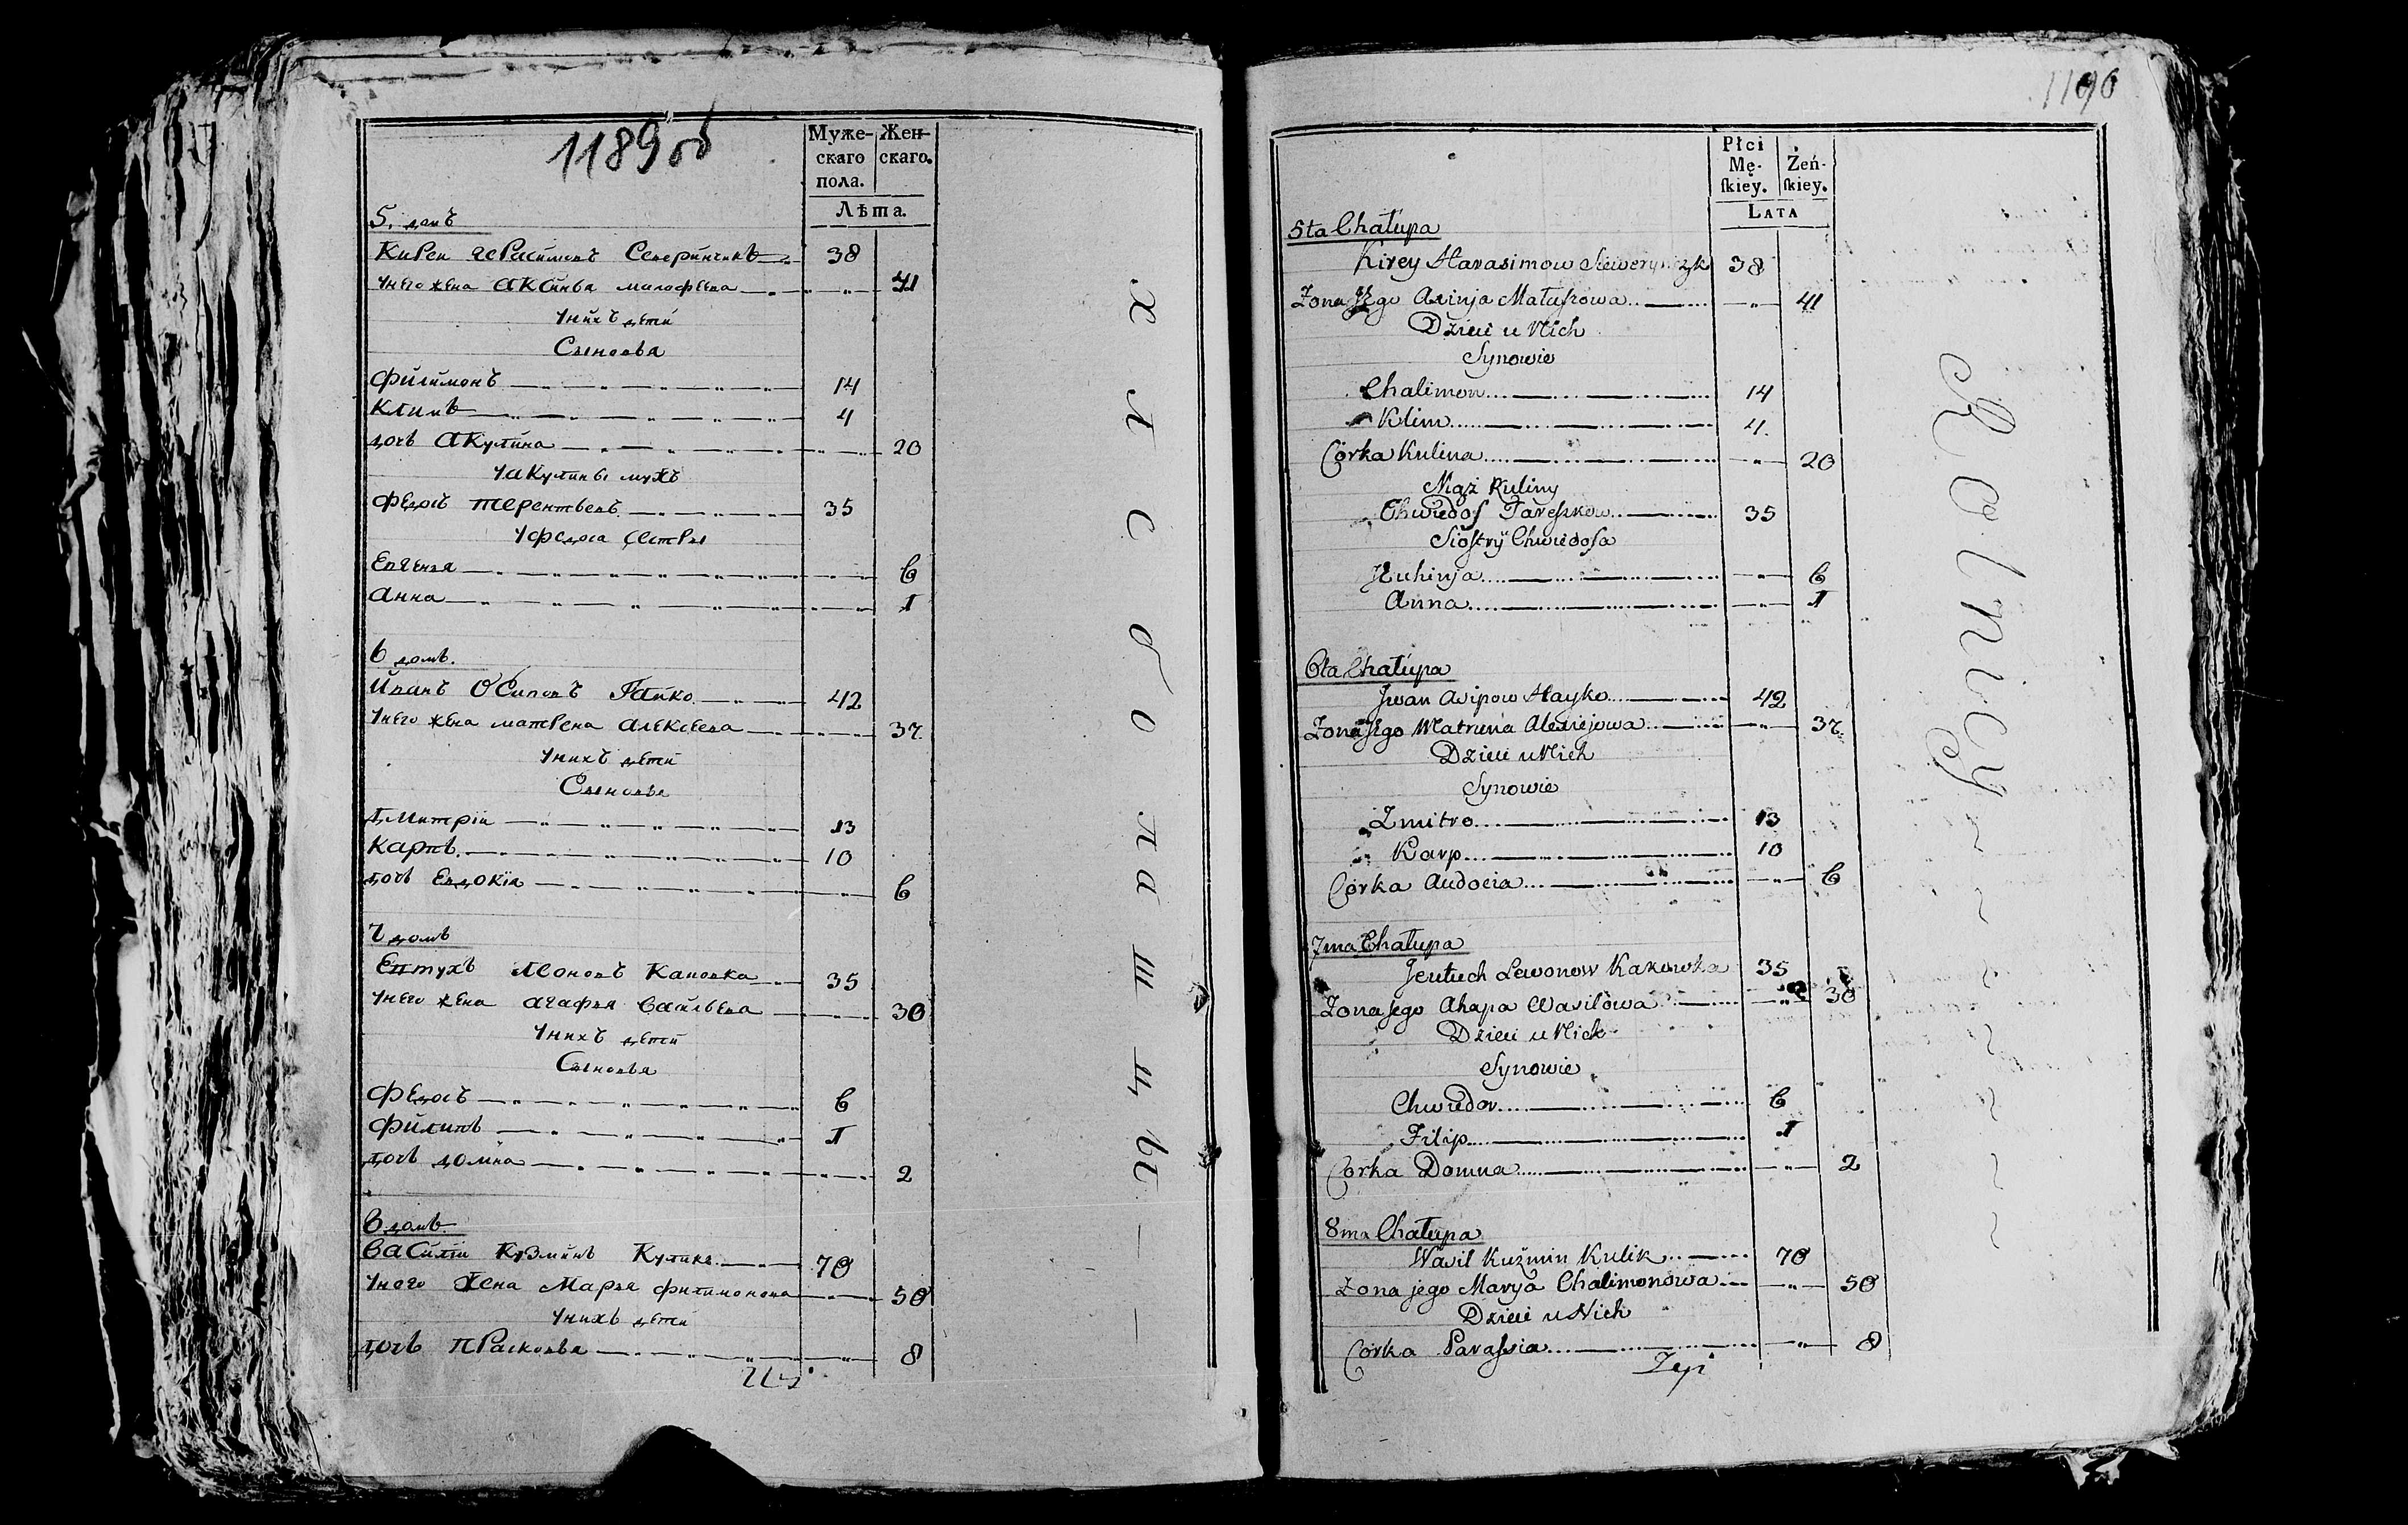 1189об
Муже-
скаго
пола.
Жен-
скаго.
Лѣта.
5. домъ
Кирей Герасимовъ Северинчикъ 38
У него жена Аксинья малофеева 41
У нихъ дети
Сыновья
Филимонъ 14
Климъ 4
дочь Акулина 20
У акулины мужъ
Федосъ Терентьевъ 35
У федоса сестры
Евгенья 6
Анна 1
6 домъ.
Иванъ Осиповъ Гайко 42
У него жена матрена Алексеева 37
У нихъ дети
Сыновья
Дмитрій 13
Карпъ 10
дочь Евдокіа 6
7 домъ
Евтухъ Леоновъ Каковка 35
У него жена агафья Васильева 30
У нихъ дети
Сыновья
Федосъ 6
Филипъ 1
дочь домна 2
8 домъ
Василій Кузминъ Куликъ 70
У него жена Марья филимонова 50
У нихъ дети
дочь Прасковья 8
Хлсболащцы
1190
Płci
Mę-
ſkiey.
Żeń-
ſkiey.
LATA
5ta Chałupa
Kirey Harasimow Siewerynczyk 38
Żona Jego Axinja Małaſzowa 41
Dzieci u Nich
Synowie
Chalimon 14
Klim 4
Córka Kulina 20
Mąż Kuliny
Chwiedoſ Tareſzkow 35
Sioſtry Chwiedoſa
Jeuhinja 6
Anna 1
6ta Chałupa
Jwan Asipow Hayko 42
Żona Jego Matruna Alexiejowa 37
Dzieci u Nich
Synowie
Zmitro 13
Karp 10
Córka Audocia 6
7ma Chałupa
Jeutuch Lewonow Kakowka 35
Żona Jego Ahapa Wasilowa 30
Dzieci u Nich
Synowie
Chwiedor 6
Filip 1
Córka Domna 2
8ma Chałupa
Wasil Kuźmin Kulik 70
Żona jego Marya Chalimonowa 50
Dzieci u Nich
Córka Paraſsia 8
Rolnicy